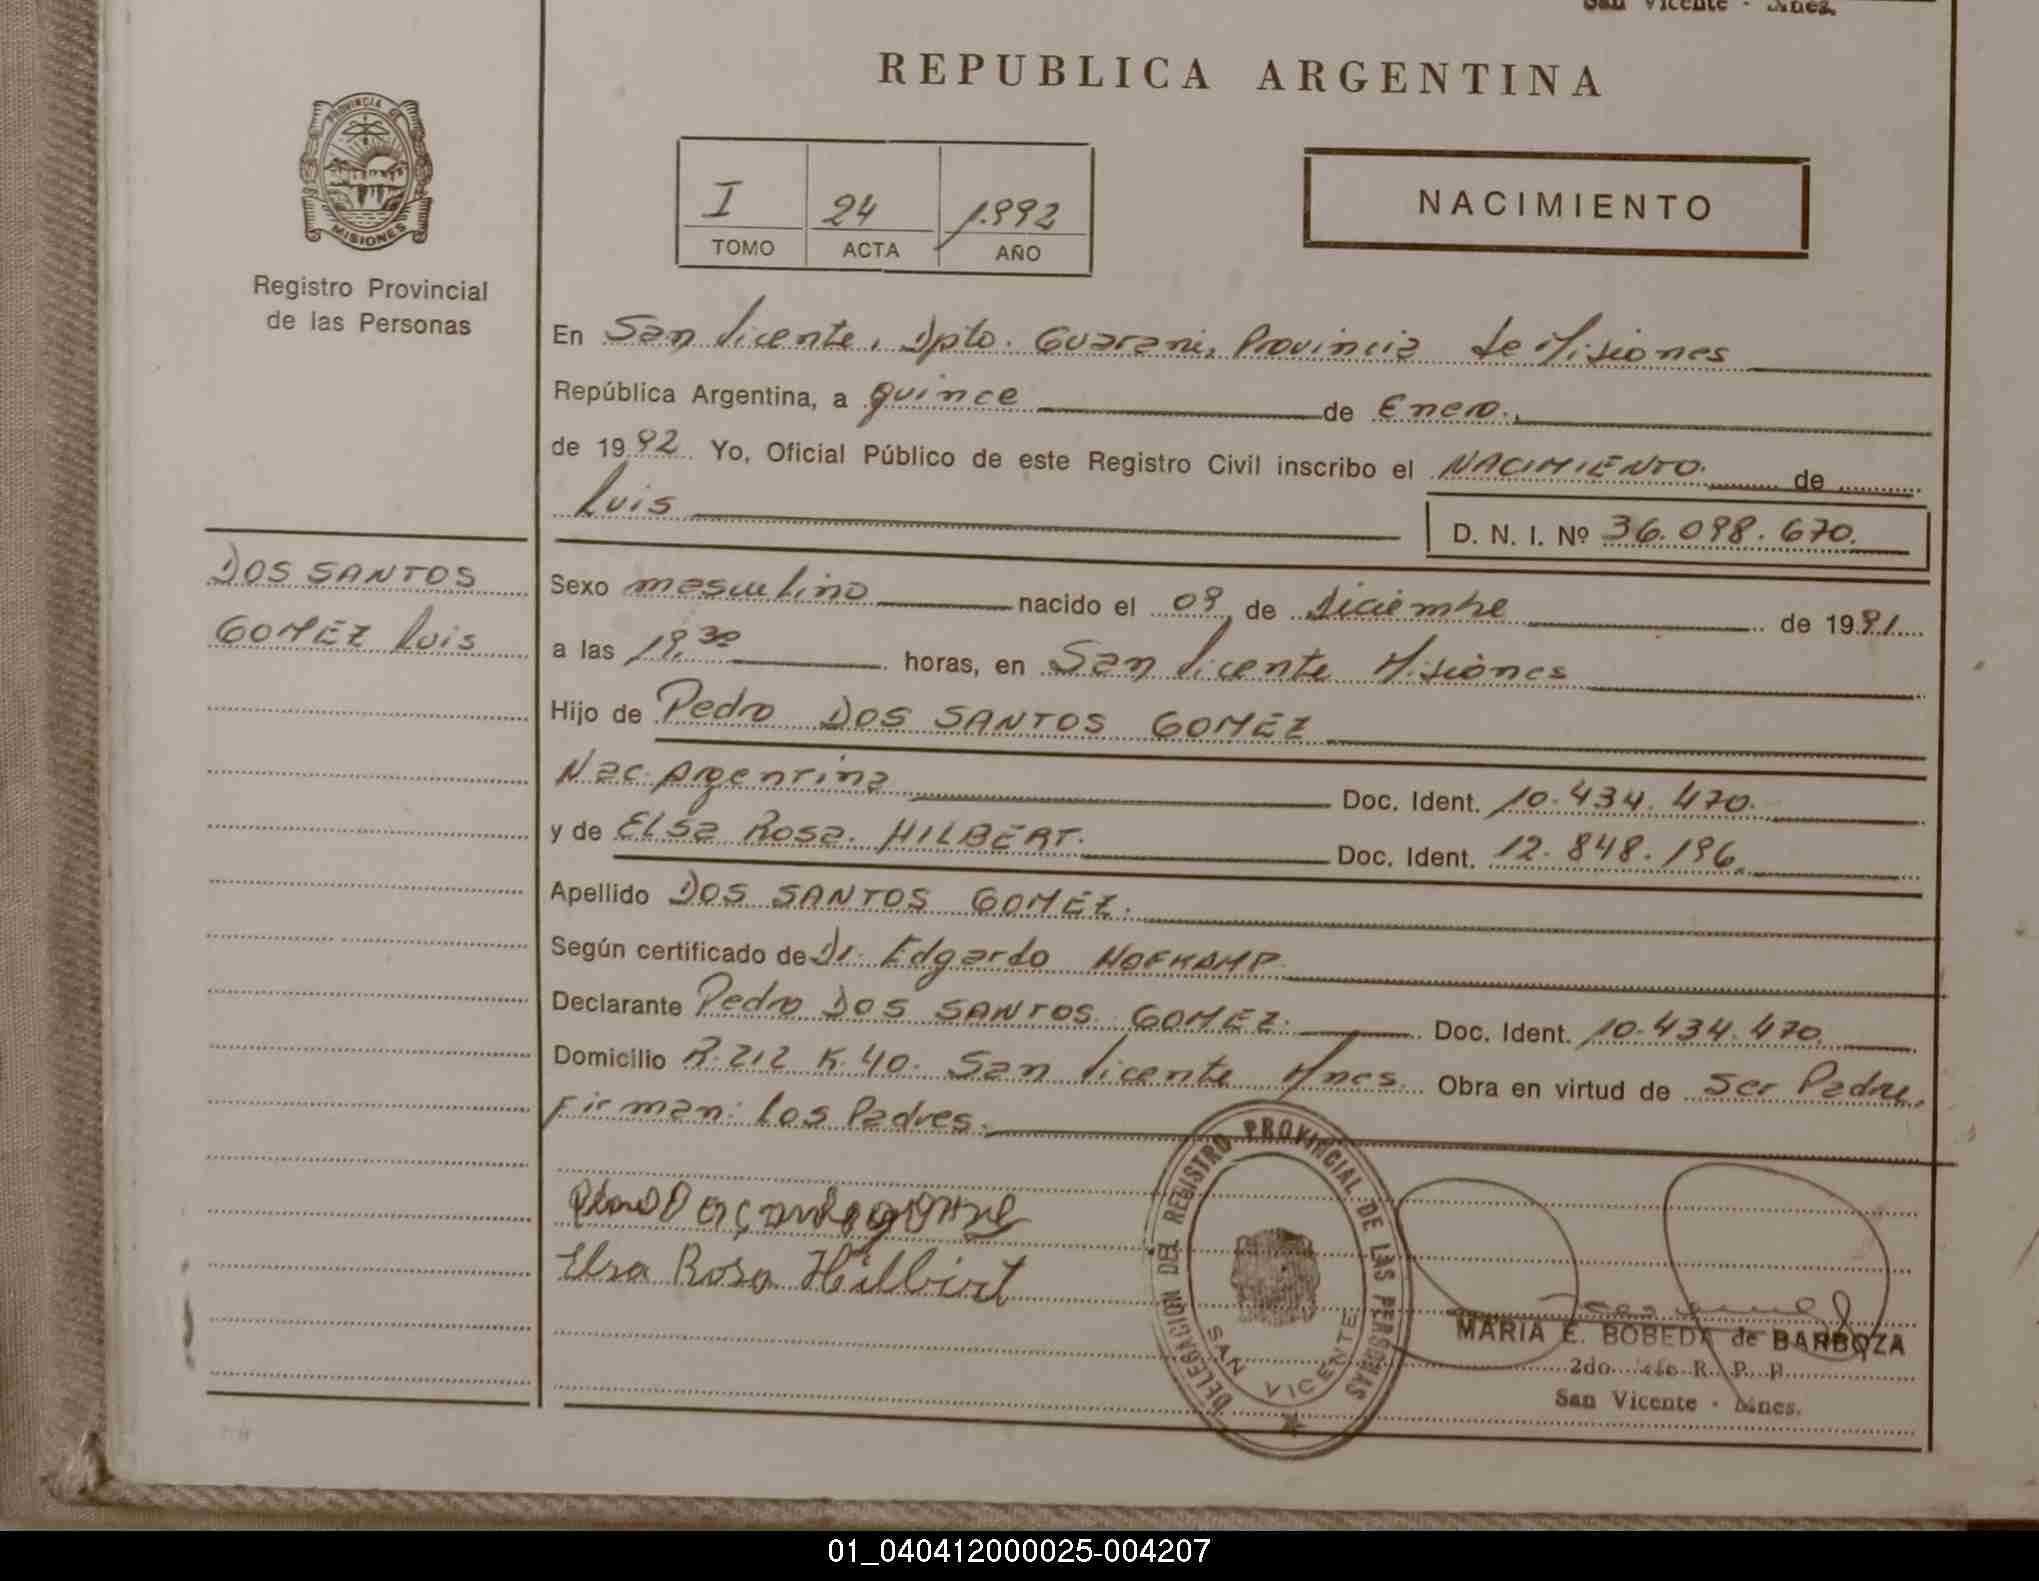 San Vicente - Mnes.
REPUBLICA ARGENTINA
PROVINCIA DE
MISIONES
Registro Provincial
de las Personas
I 24 1.992
TOMO ACTA AÑO
NACIMIENTO
En San Vicente, Dpto. Guarani, Provincia de Misiones
República Argentina, a quince de Enero.
de 1992 Yo, Oficial Público de este Registro Civil inscribo el NACIMIENTO. de
Luis
D. N. I. Nº 36.098.670.
DOS SANTOS
GOMEZ Luis
Sexo masculino nacido el 09 de Diciembre de 1991
a las 19,30 horas, en San Vicente Misiones
Hijo de Pedro DOS SANTOS GOMEZ
Nac. Argentina Doc. Ident. 10.434.470.
y de Elsa Rosa. HILBERT. Doc. Ident. 12.848.196.
Apellido DOS SANTOS GOMEZ.
Según certificado de Dr. Edgardo HOFKAMP
Declarante Pedro DOS SANTOS GOMEZ. Doc. Ident. 10.434.470
Domicilio R.212 K.40. San Vicente Mnes. Obra en virtud de Ser Padre.
Firman: Los Padres.
Elsa Rosa Hilbirt
DELEGACION DEL REGISTRO PROVINCIAL DE LAS PERSONAS
SAN VICENTE
MARIA E. BOBEDA de BARBOZA
2do. R. P. P.
San Vicente - Mnes.
01_040412000025-004207